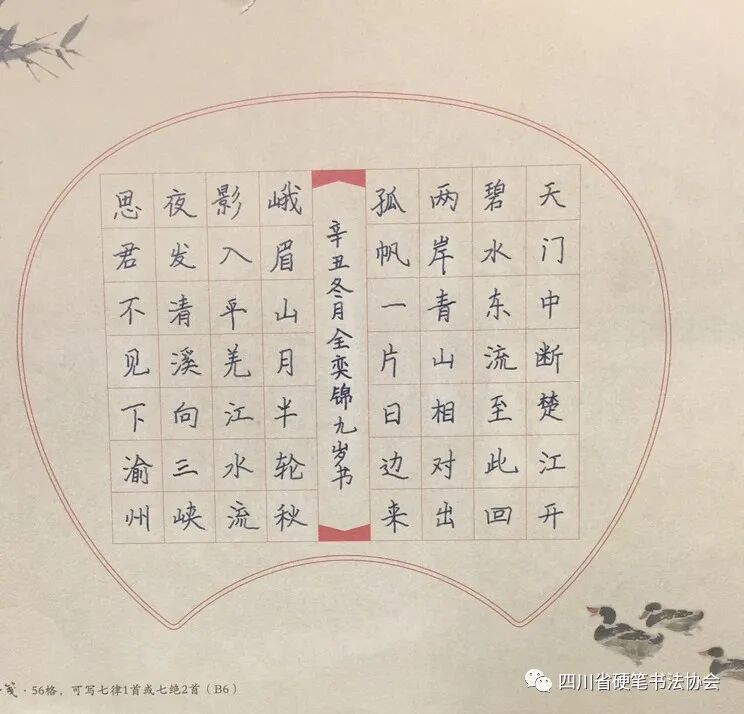 天门中断楚江开
碧水东流至此回
两岸青山相对出
孤帆一片日边来
辛丑冬月全奕锦九岁书
峨眉山月半轮秋
影入平羌江水流
夜发清溪向三峡
思君不见下渝州
笺·56格，可写七律1首或七绝2首（B6）
四川省硬笔书法协会